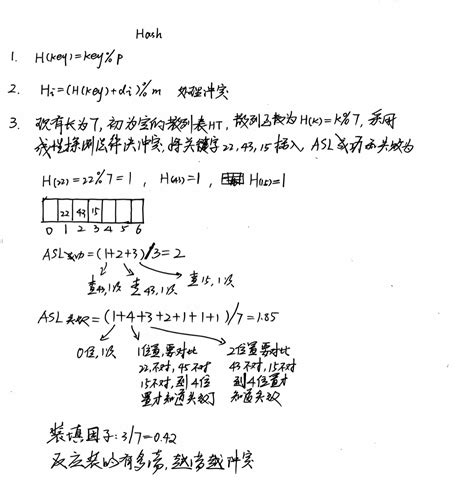 Hash
1. H(key)=key%p
2. Hi=(H(key)+di)%m 处理冲突
3. 现有长为7,初为空的散列表HT,散列函数为H(K)=K%7,采用
线性探测法解决冲突.将关键字22,43,15插入,ASL成功和失败为
H(22)=22%7=1, H(43)=1, H(15)=1
22 43 15
0 1 2 3 4 5 6
ASL成功=(1+2+3)/3=2
查43,1次 查43,1次 查15,1次
ASL失败=(1+4+3+2+1+1+1)/7=1.85
0位,1次 1位置,要对比 2位置要对比
22不对,45不对 43不对,15不对
15不对,到4位 到4位置才
置才知道失败了 知道失败
装填因子:3/7=0.42
反应装的有多满,越满越冲突